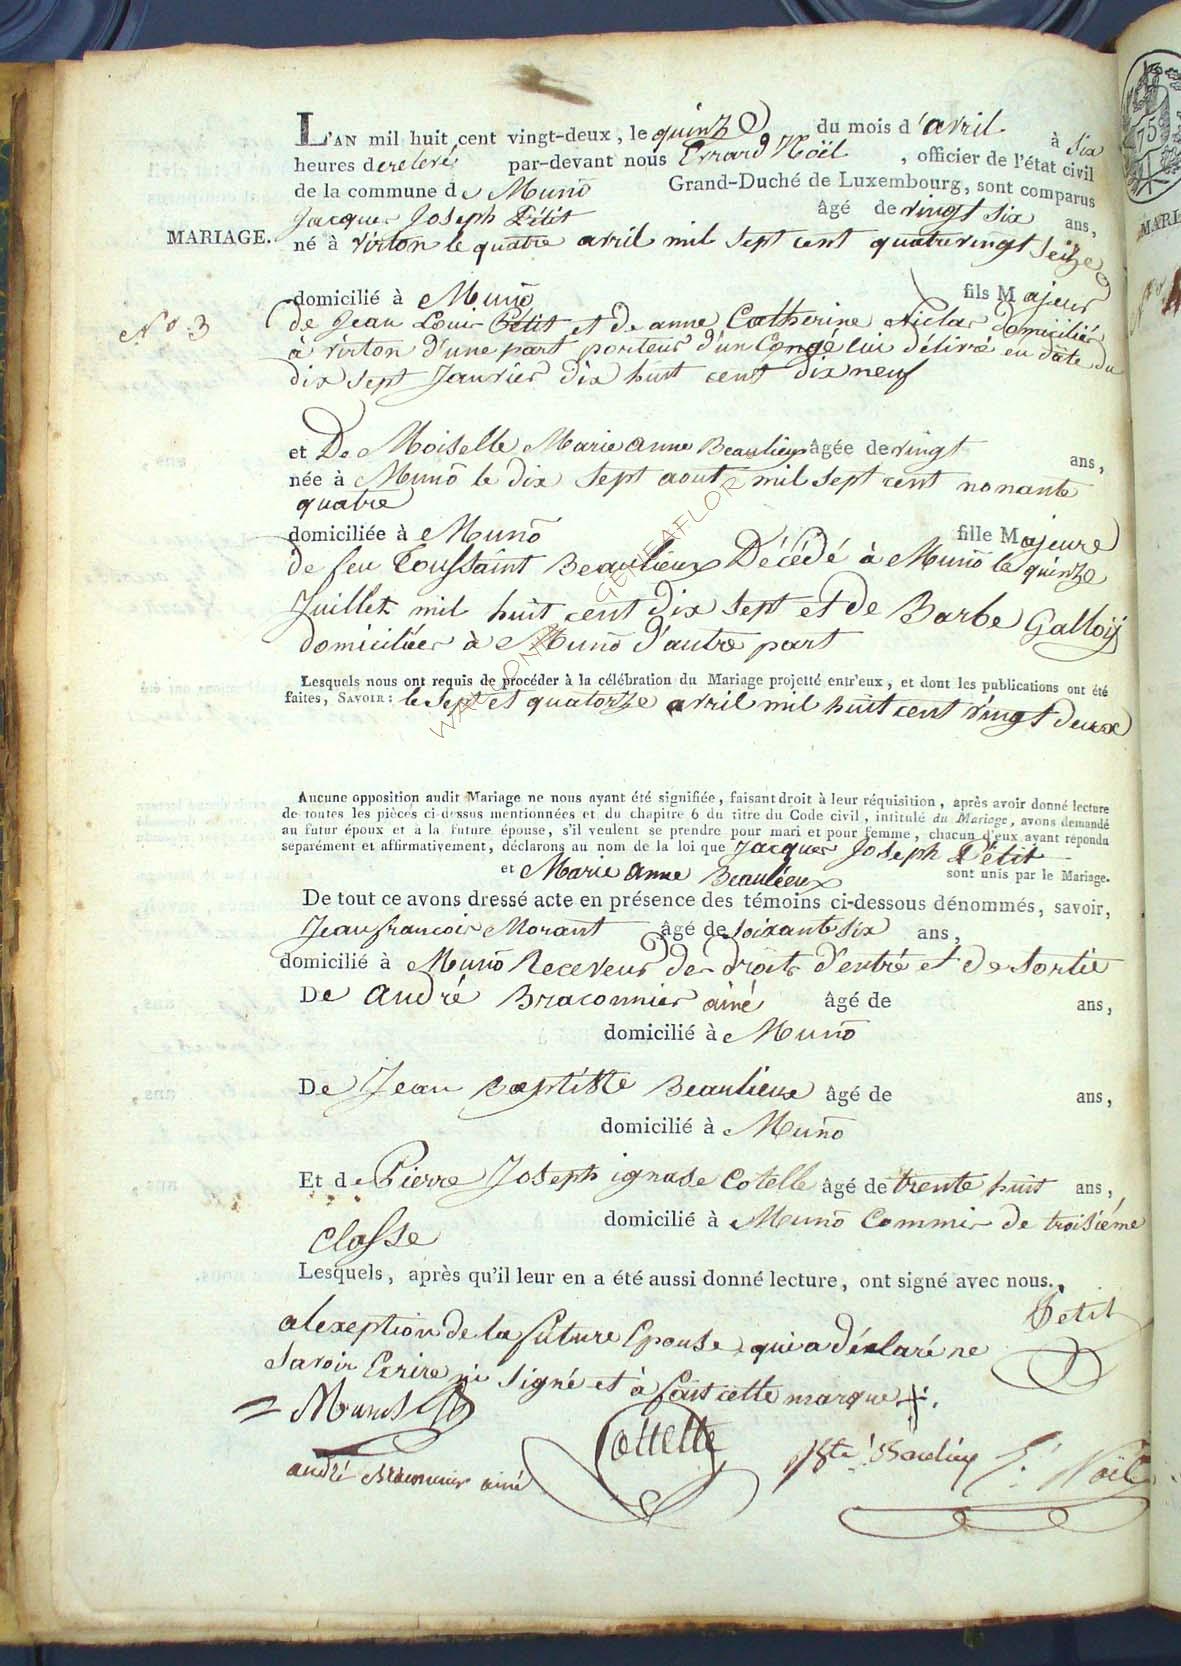 L'AN mil huit cent vingt-deux, le quinze du mois d'avril à six
heures de relevé par-devant nous Errard Noël, officier de l'état civil
de la commune de Muno Grand-Duché de Luxembourg, sont comparus
Jacques Joseph Pétit âgé de vingt six ans,
MARIAGE. né à Virton le quatre avril mil sept cent quatrevingt seize
domicilié à Muno fils Majeur
No. 3 de Jean Louis Pétit et de anne Catherine Niclas domiciliés
à Virton d'une part porteur d'un Congé lui délivré en date du
dix sept Janvier dix huit cent dix neuf
et De Moiselle Marie anne Beaulieux âgée de vingt ans,
née à Muno le dix sept aout mil sept cent nonante
quatre
domiciliée à Muno fille Majeure
de feu Toussaint Beaulieux Décédé à Muno le quinze
Juillet mil huit cent dix sept et de Barbe Galloij
domiciliées à Muno d'autre part
Lesquels nous ont requis de procéder à la célébration du Mariage projetté entr'eux, et dont les publications ont été
faites, SAVOIR: le sept et quatorze avril mil huit cent vingt deux
Aucune opposition audit Mariage ne nous ayant été signifiée, faisant droit à leur réquisition, après avoir donné lecture
de toutes les pièces ci-dessus mentionnées et du chapitre 6 du titre du Code civil, intitulé du Mariage, avons demandé
au futur époux et à la future épouse, s'il veulent se prendre pour mari et pour femme, chacun d'eux ayant répondu
séparément et affirmativement, déclarons au nom de la loi que Jacques Joseph Pétit
et Marie anne Beaulieux sont unis par le Mariage.
De tout ce avons dressé acte en présence des témoins ci-dessous dénommés, savoir,
Jean francois Morant âgé de soixante six ans,
domicilié à Muno Receveur des droits d'entré et de sortie
De André Braconnier ainé âgé de ans,
domicilié à Muno
De Jean Baptiste Beaulieux âgé de ans,
domicilié à Muno
Et de Pierre Joseph ignase Cotelle âgé de trente huit ans,
domicilié à Muno Commis de troisième
classe
Lesquels, après qu'il leur en a été aussi donné lecture, ont signé avec nous.
alexeption de la future Epouse qui a déclaré ne
Petit
savoir Ecrire ni signé et à fait cette marque +.
Cottelle
andré Braconnier ainé
E. Noël
WALLONIA GENEAFLOR
MARI